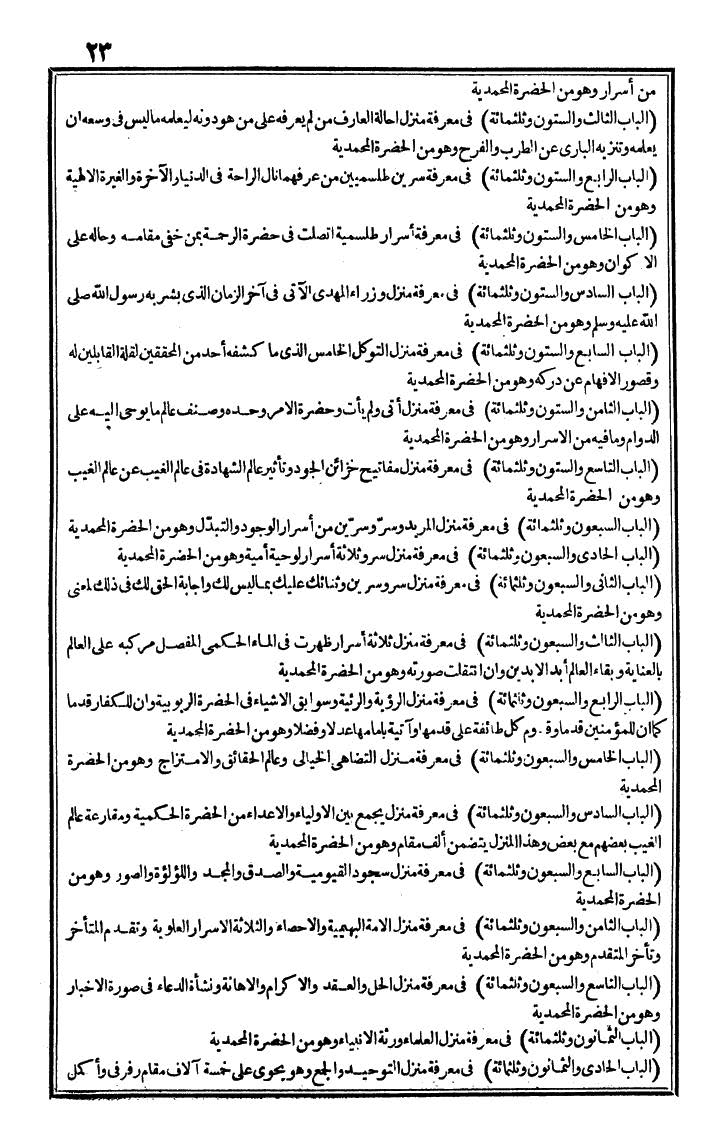 ٢٣
من أسرار وهو من الحضرة المحمدية
(الباب الثالث والستون وثلثمائة) فى معرفة منزل احالة العارف من لم يعرفه على من هو دونه ليعلمه ماليس فى وسعه ان
يعلمه وتنزيه البارى عن الطرب والفرح وهو من الحضرة المحمدية
(الباب الرابع والستون وثلثمائة) فى معرفة سرين طلسميين من عرفهما نال الراحة فى الدنيا والآخرة والغيرة الالهية
وهو من الحضرة المحمدية
(الباب الخامس والستون وثلثمائة) فى معرفة أسرار طلسمية اتصلت فى حضرة الرحمة بمن خفى مقامه وحاله على
الاكوان وهو من الحضرة المحمدية
(الباب السادس والستون وثلثمائة) فى معرفة منزل وزراء المهدى الآتى فى آخر الزمان الذى بشر به رسول الله صلى
الله عليه وسلم وهو من الحضرة المحمدية
(الباب السابع والستون وثلثمائة) فى معرفة منزل التوكل الخامس الذى ما كشفه أحد من المحققين لقلة القابلين له
وقصور الافهام عن دركه وهو من الحضرة المحمدية
(الباب الثامن والستون وثلثمائة) فى معرفة منزل أتى ولم يأت وحضرة الامر وحده وصنف عالم ما يوحى اليه على
الدوام وما فيه من الاسرار وهو من الحضرة المحمدية
(الباب التاسع والستون وثلثمائة) فى معرفة منزل مفاتيح خزائن الجود وتأثير عالم الشهادة فى عالم الغيب عن عالم الغيب
وهو من الحضرة المحمدية
(الباب السبعون وثلثمائة) فى معرفة منزل المريد وسرّ وسرّين من أسرار الوجود والتبدّل وهو من الحضرة المحمدية
(الباب الحادى والسبعون وثلثمائة) فى معرفة منزل سر وثلاثة أسرار لوحية أمية وهو من الحضرة المحمدية
(الباب الثانى والسبعون وثلثمائة) فى معرفة منزل سر وسرين وثنائك عليك بما ليس لك واجابة الحق لك فى ذلك لمعنى
وهو من الحضرة المحمدية
(الباب الثالث والسبعون وثلثمائة) فى معرفة منزل ثلاثة أسرار ظهرت فى الماء الحكمى المفصل مركبه على العالم
بالعناية وبقاء العالم أبد الابدين وان انتقلت صورته وهو من الحضرة المحمدية
(الباب الرابع والسبعون وثلثمائة) فى معرفة منزل الرؤية والرئية وسوابق الاشياء فى الحضرة الربوبية وان للكفار قدما
كما ان للمؤمنين قدما وقدوم كل طائفة على قدمها وآتية بامامها عدلا وفضلا وهو من الحضرة المحمدية
(الباب الخامس والسبعون وثلثمائة) فى معرفة منزل التضاهى الخيالى وعالم الحقائق والامتزاج وهو من الحضرة
المحمدية
(الباب السادس والسبعون وثلثمائة) فى معرفة منزل يجمع بين الاولياء والاعداء من الحضرة الحكمية ومقارعة عالم
الغيب بعضهم مع بعض وهذا المنزل يتضمن ألف مقام وهو من الحضرة المحمدية
(الباب السابع والسبعون وثلثمائة) فى معرفة منزل سجود القيومية والصدق والمجد واللؤلؤة والصور وهو من
الحضرة المحمدية
(الباب الثامن والسبعون وثلثمائة) فى معرفة منزل الامة البهيمية والاحصاء والثلاثة الاسرار العلوية وتقدم المتأخر
وتأخر المتقدم وهو من الحضرة المحمدية
(الباب التاسع والسبعون وثلثمائة) فى معرفة منزل الحل والعقد والاكرام والاهانة ونشأة الدعاء فى صورة الاخبار
وهو من الحضرة المحمدية
(الباب الثمانون وثلثمائة) فى معرفة منزل العلماء ورثة الانبياء وهو من الحضرة المحمدية
(الباب الحادى والثمانون وثلثمائة) فى معرفة منزل التوحيد والجمع وهو يحوى على خمسة آلاف مقام رفرفى وأكمل